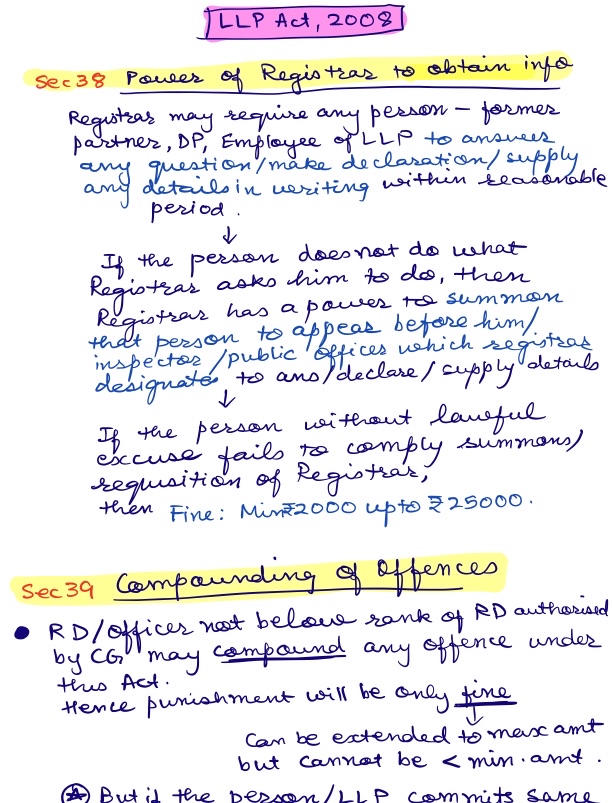 LLP Act, 2008
Sec 38 Power of Registrar to obtain info
Registrar may require any person – former
partner, DP, Employee of LLP to answer
any question/make declaration/supply
any details in writing within reasonable
period.
↓
If the person does not do what
Registrar asks him to do, then
Registrar has a power to summon
that person to appear before him/
inspector/public officer which registrar
designate, to ans/declare/supply details
↓
If the person without lawful
excuse fails to comply summons/
requisition of Registrar,
then Fine: Min ₹2000 upto ₹25000.
Sec 39 Compounding of Offences
• RD/Officer not below rank of RD authorised
by CG may compound any offence under
this Act.
Hence punishment will be only fine
↓
Can be extended to max amt
but cannot be < min. amt.
But if the person/LLP commits same